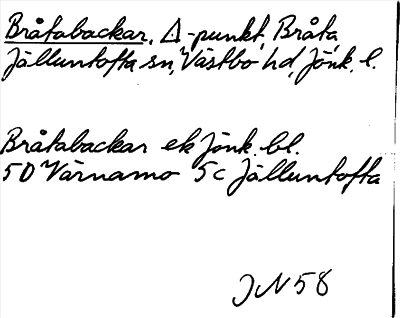 Bråtabackar, Δ-punkt, Bråta,
Jälluntofta sn, Västbo hd, Jönk. l.
Bråtabackar ek Jönk. bl.
5D Värnamo 5c Jälluntofta
JN 58